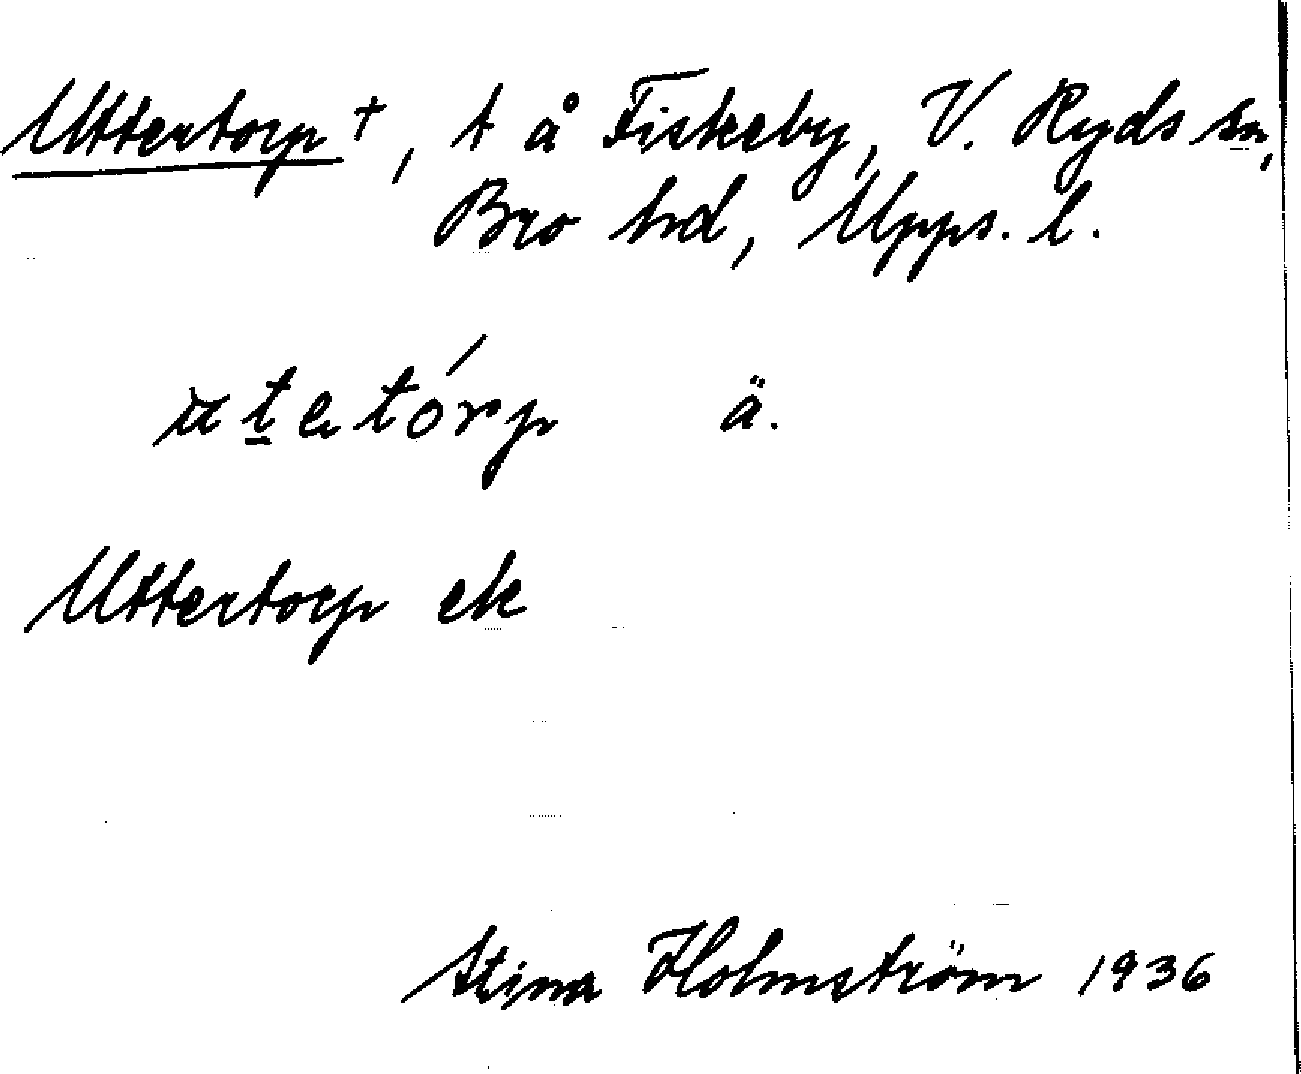 Uttertorp †, t å Fiskeby, V. Ryds sn,
Bro hd, Upps. l.
ä.
Uttertorp ek
Stina Holmström 1936